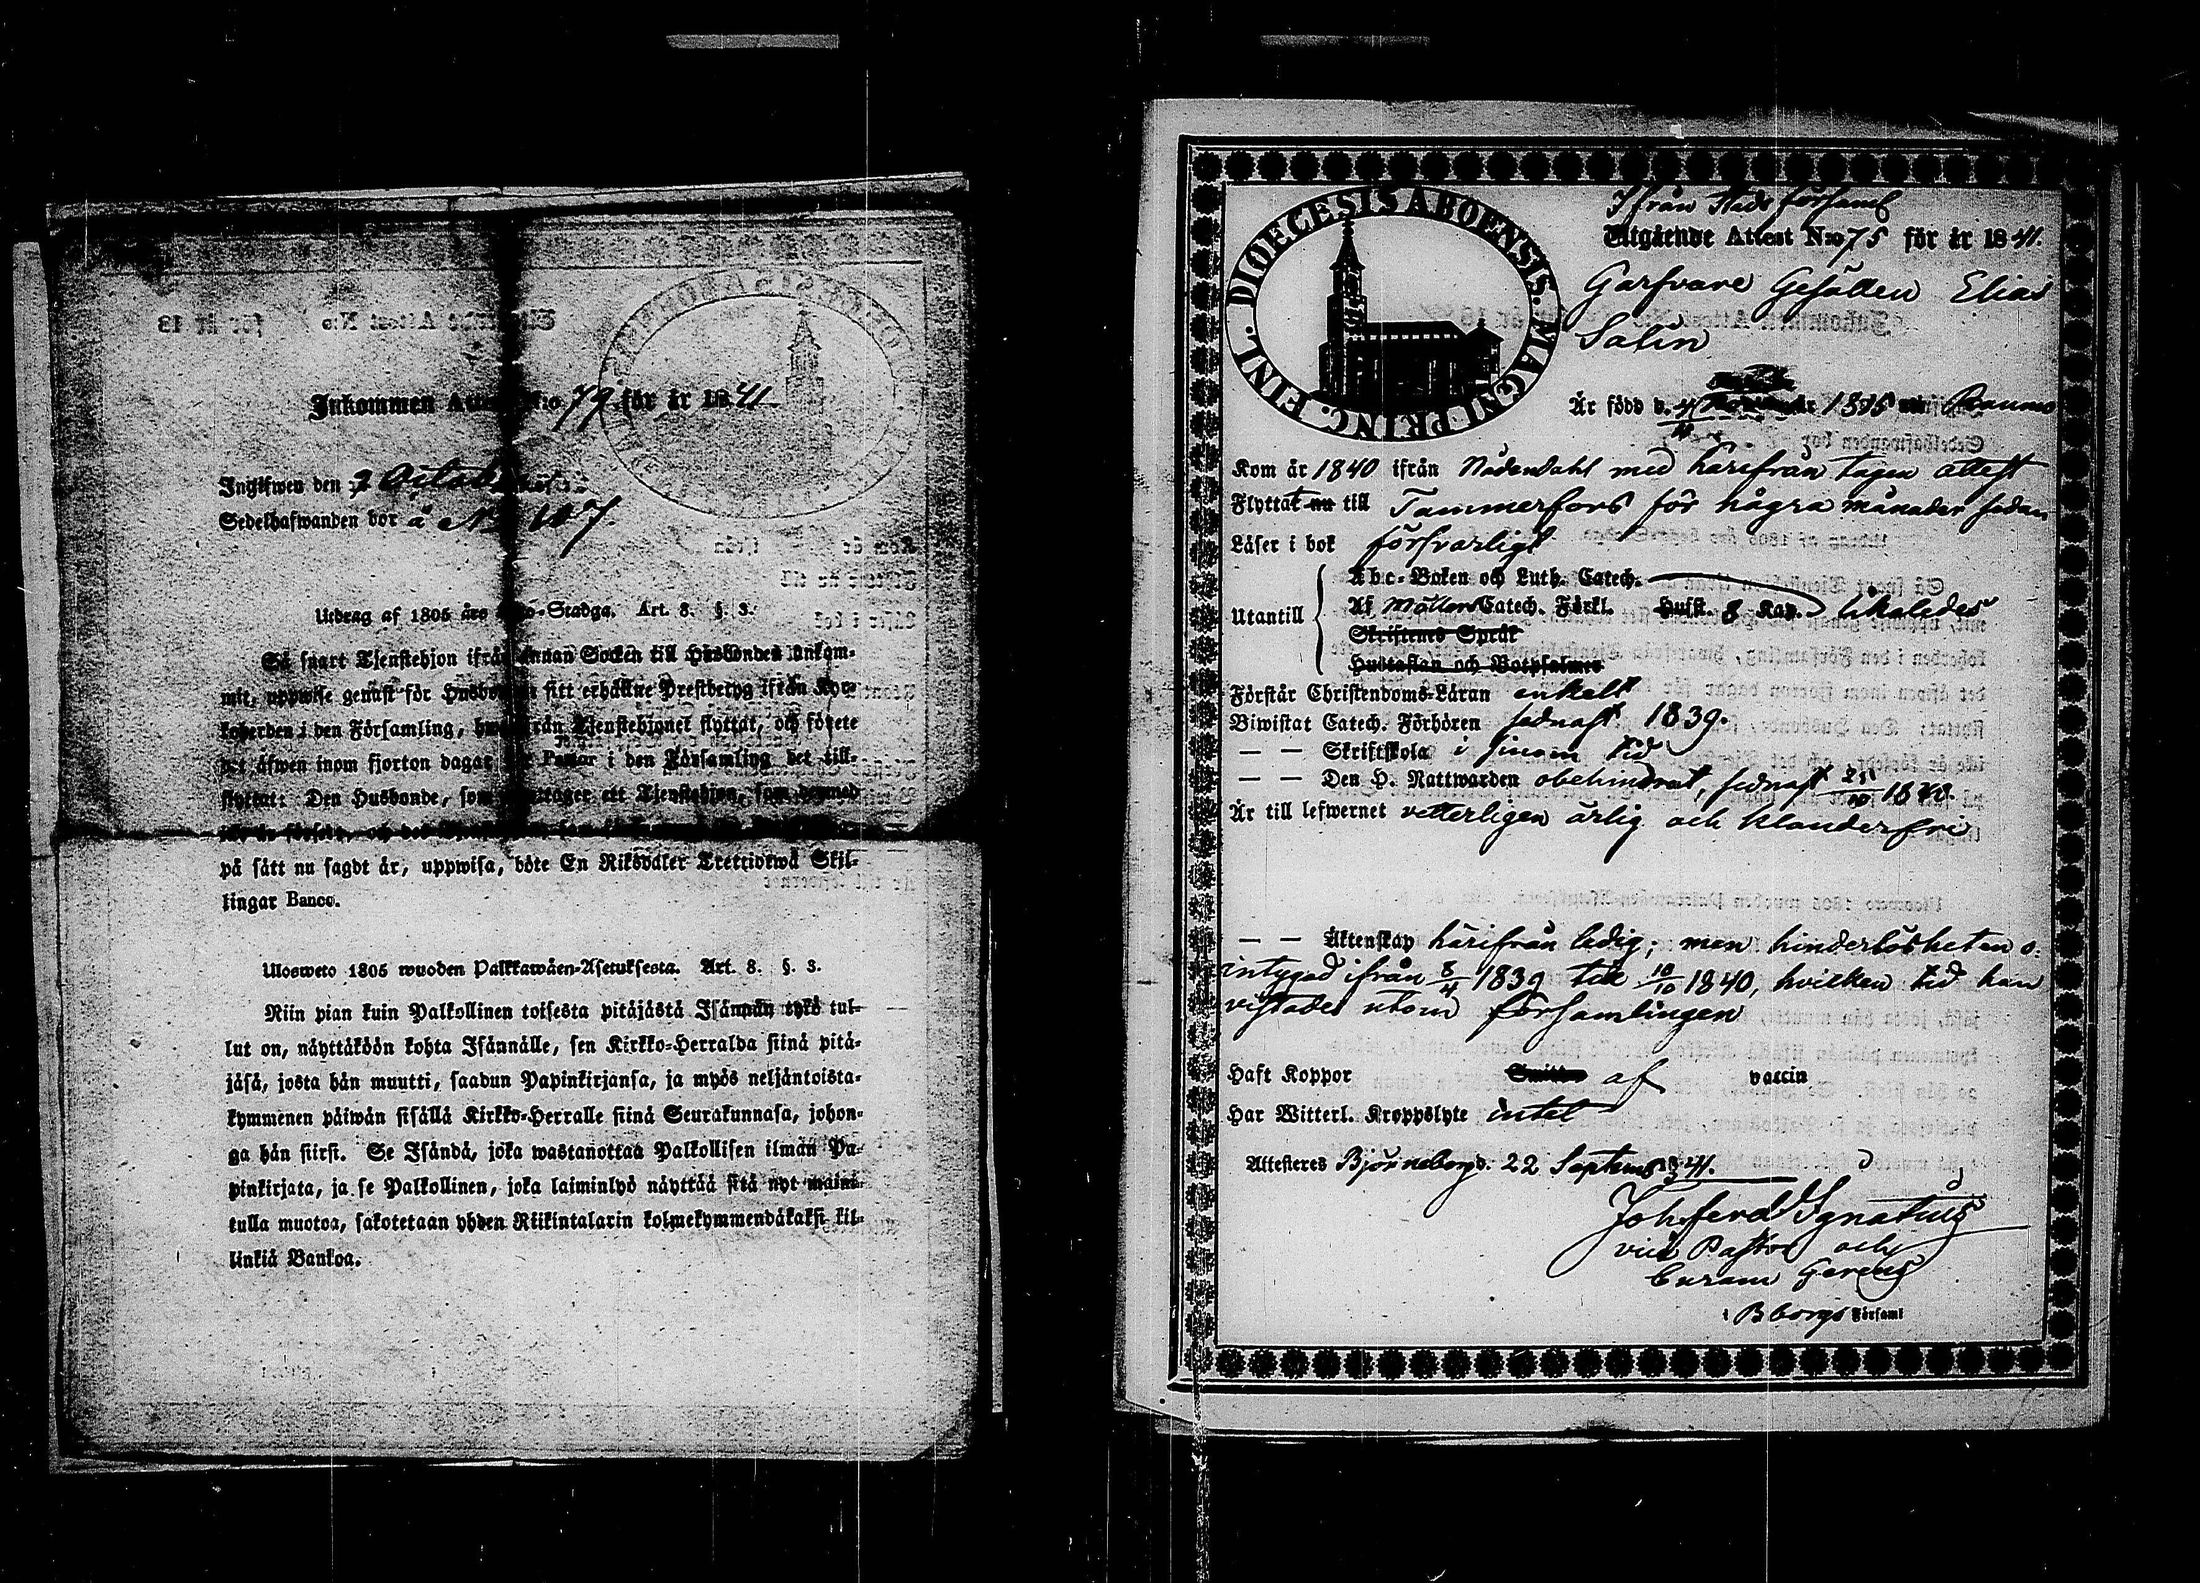 Inkommen Attest N:o 79 för år 1841
Ingifwen den 2 October
Sedelhafwanden bor å N:o 107.
Utdrag af 1805 års Lego-Stadga. Art. 8. §. 3.
Så snart Tjenstehjon ifrån annan Socken till Husbonden ankom-
mit, uppwise genast för Husbonden sitt erhållne Prestbetyg ifrån Kyr-
koherden i den Församling, hwarifrån Tjenstehjonet flyttat, och förete
det äfwen inom fjorton dagar för Pastor i den Församling det till-
flyttat: Den Husbonde, som emottager ett Tjenstehjon, som dermed
icke är försedt, och det
på sätt nu sagdt är, uppwisa, böte En Riksdaler Trettiotwå Skil-
lingar Banco.
Ulosweto 1805 wuoden Palkkawäen-Asetuksesta. Art. 8. §. 3.
Niin pian kuin Palkollinen toisesta pitäjästä Isännän tykö tul-
lut on, näyttäköön kohta Isännälle, sen Kirkko-Herralda siinä pitä-
jäsä, josta hän muutti, saadun Papinkirjansa, ja myös neljäntoista-
kymmenen päiwän sisällä Kirkko-Herralle siinä Seurakunnasa, johon-
ga hän siirsi. Se Isändä, joka wastanottaa Palkollisen ilman Pa-
pinkirjata, ja se Palkollinen, joka laiminlyö näyttää sitä nyt maini-
tulla muotoa, sakotetaan yhden Riikintalarin kolmekymmendäkaksi kil-
linkiä Bankoa.
DIOECESIS ABOENSIS. MAGNI PRINC. FINL.
Ifrån Stads församl
Utgående Attest N:o 75 för år 1841.
Garfvare Gesällen Elias
Salin
Är född d. 4/11 år 1815 uti Raumo
Kom år 1840 ifrån Nådendahl med härifrån tagen attest
Flyttat nu till Tammerfors för några månader sedan
Läser i bok försvarligt
Abc-Boken och Luth. Catech.
Utantill Af Möllers Catech. Förkl. Hufst. 8 Kap. likaledes
Skriftenes Språk
Hustaflan och Botpsalmer
Förstår Christendoms-Läran enkelt
Biwistat Catech. Förhören sednast 1839.
— — Skriftskola i sinom tid
— — Den H. Nattwarden obehindrat, sednast 25/10 1840.
Är till lefwernet vetterligen ärlig och klanderfri
— — Äktenskap härifrån ledig; men hinderlösheten o-
intygad ifrån 8/4 1839 till 10/10 1840, hvilken tid han
vistades utom församlingen
Haft Koppor Smitto af vaccin
Har Witterl. Kroppslyte intet
Attesteres Björneborg d. 22 Septemb 1841.
Joh. Ferd. Ignatius
vice Pastor och
Curam Gerens
i Bborgs Församl